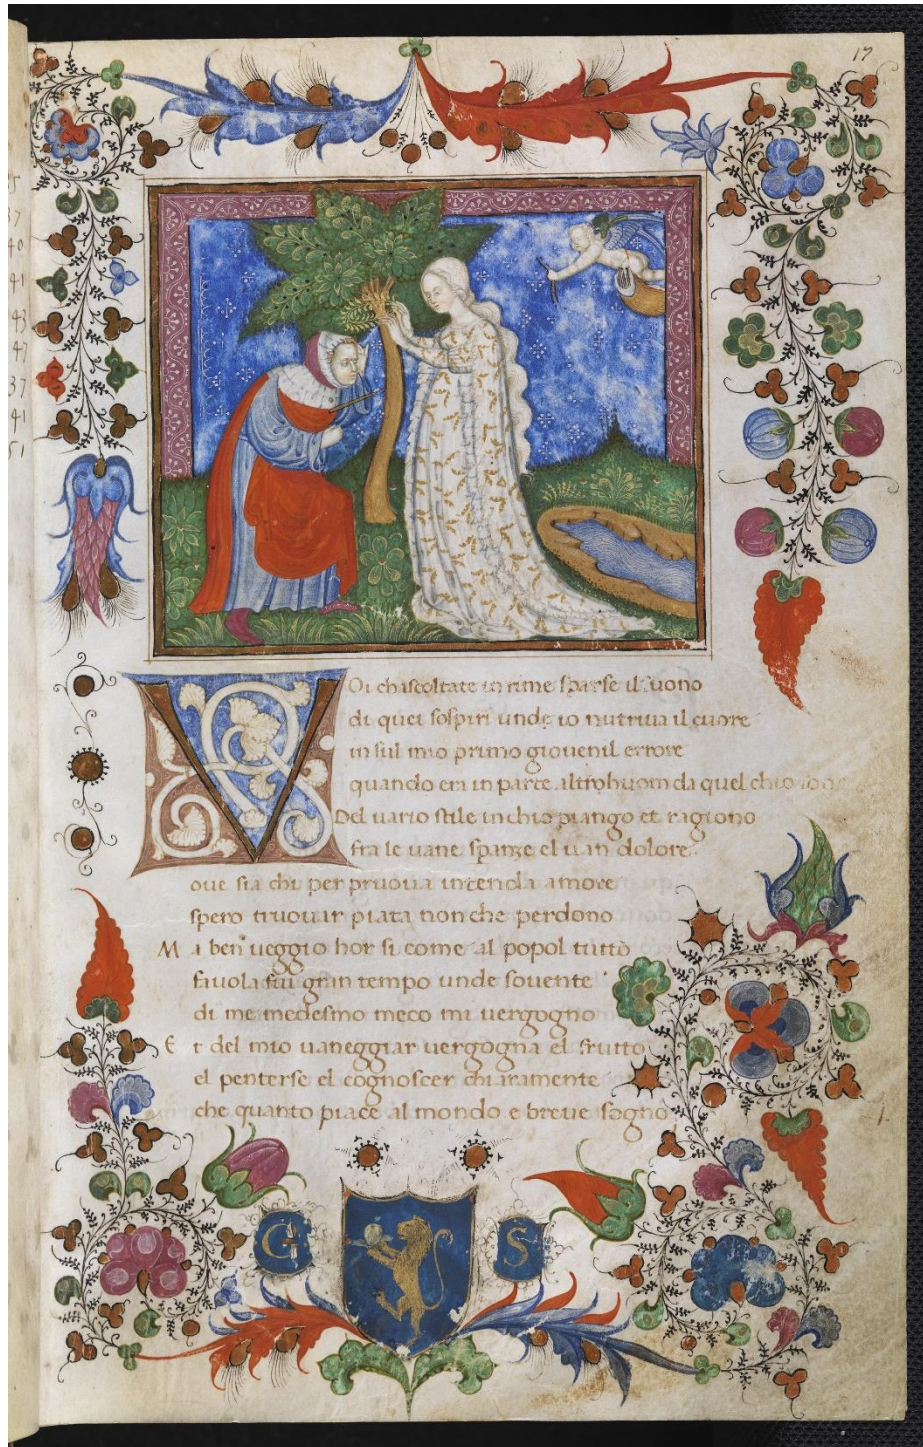 17
VOi chascoltate in rime sparse il suono
di quei sospiri unde io nutriua il cuore
in sul mio primo giouenil errore
quando era in parte altrohuom da quel chio sono
Del uario stile inchio piango et ragiono
fra le uane spanze el uan dolore
oue sia chi per pruoua intenda amore
spero truouar piata non che perdono
Ma ben ueggio hor si come al popol tutto
fauola fui gran tempo unde souente
di me medesmo meco mi uergogno
Et del mio uaneggiar uergogna el frutto
el penterse el cognoscer chiaramente
che quanto piace al mondo e breue sogno
G S
37
40
41
43
47
37
41
51